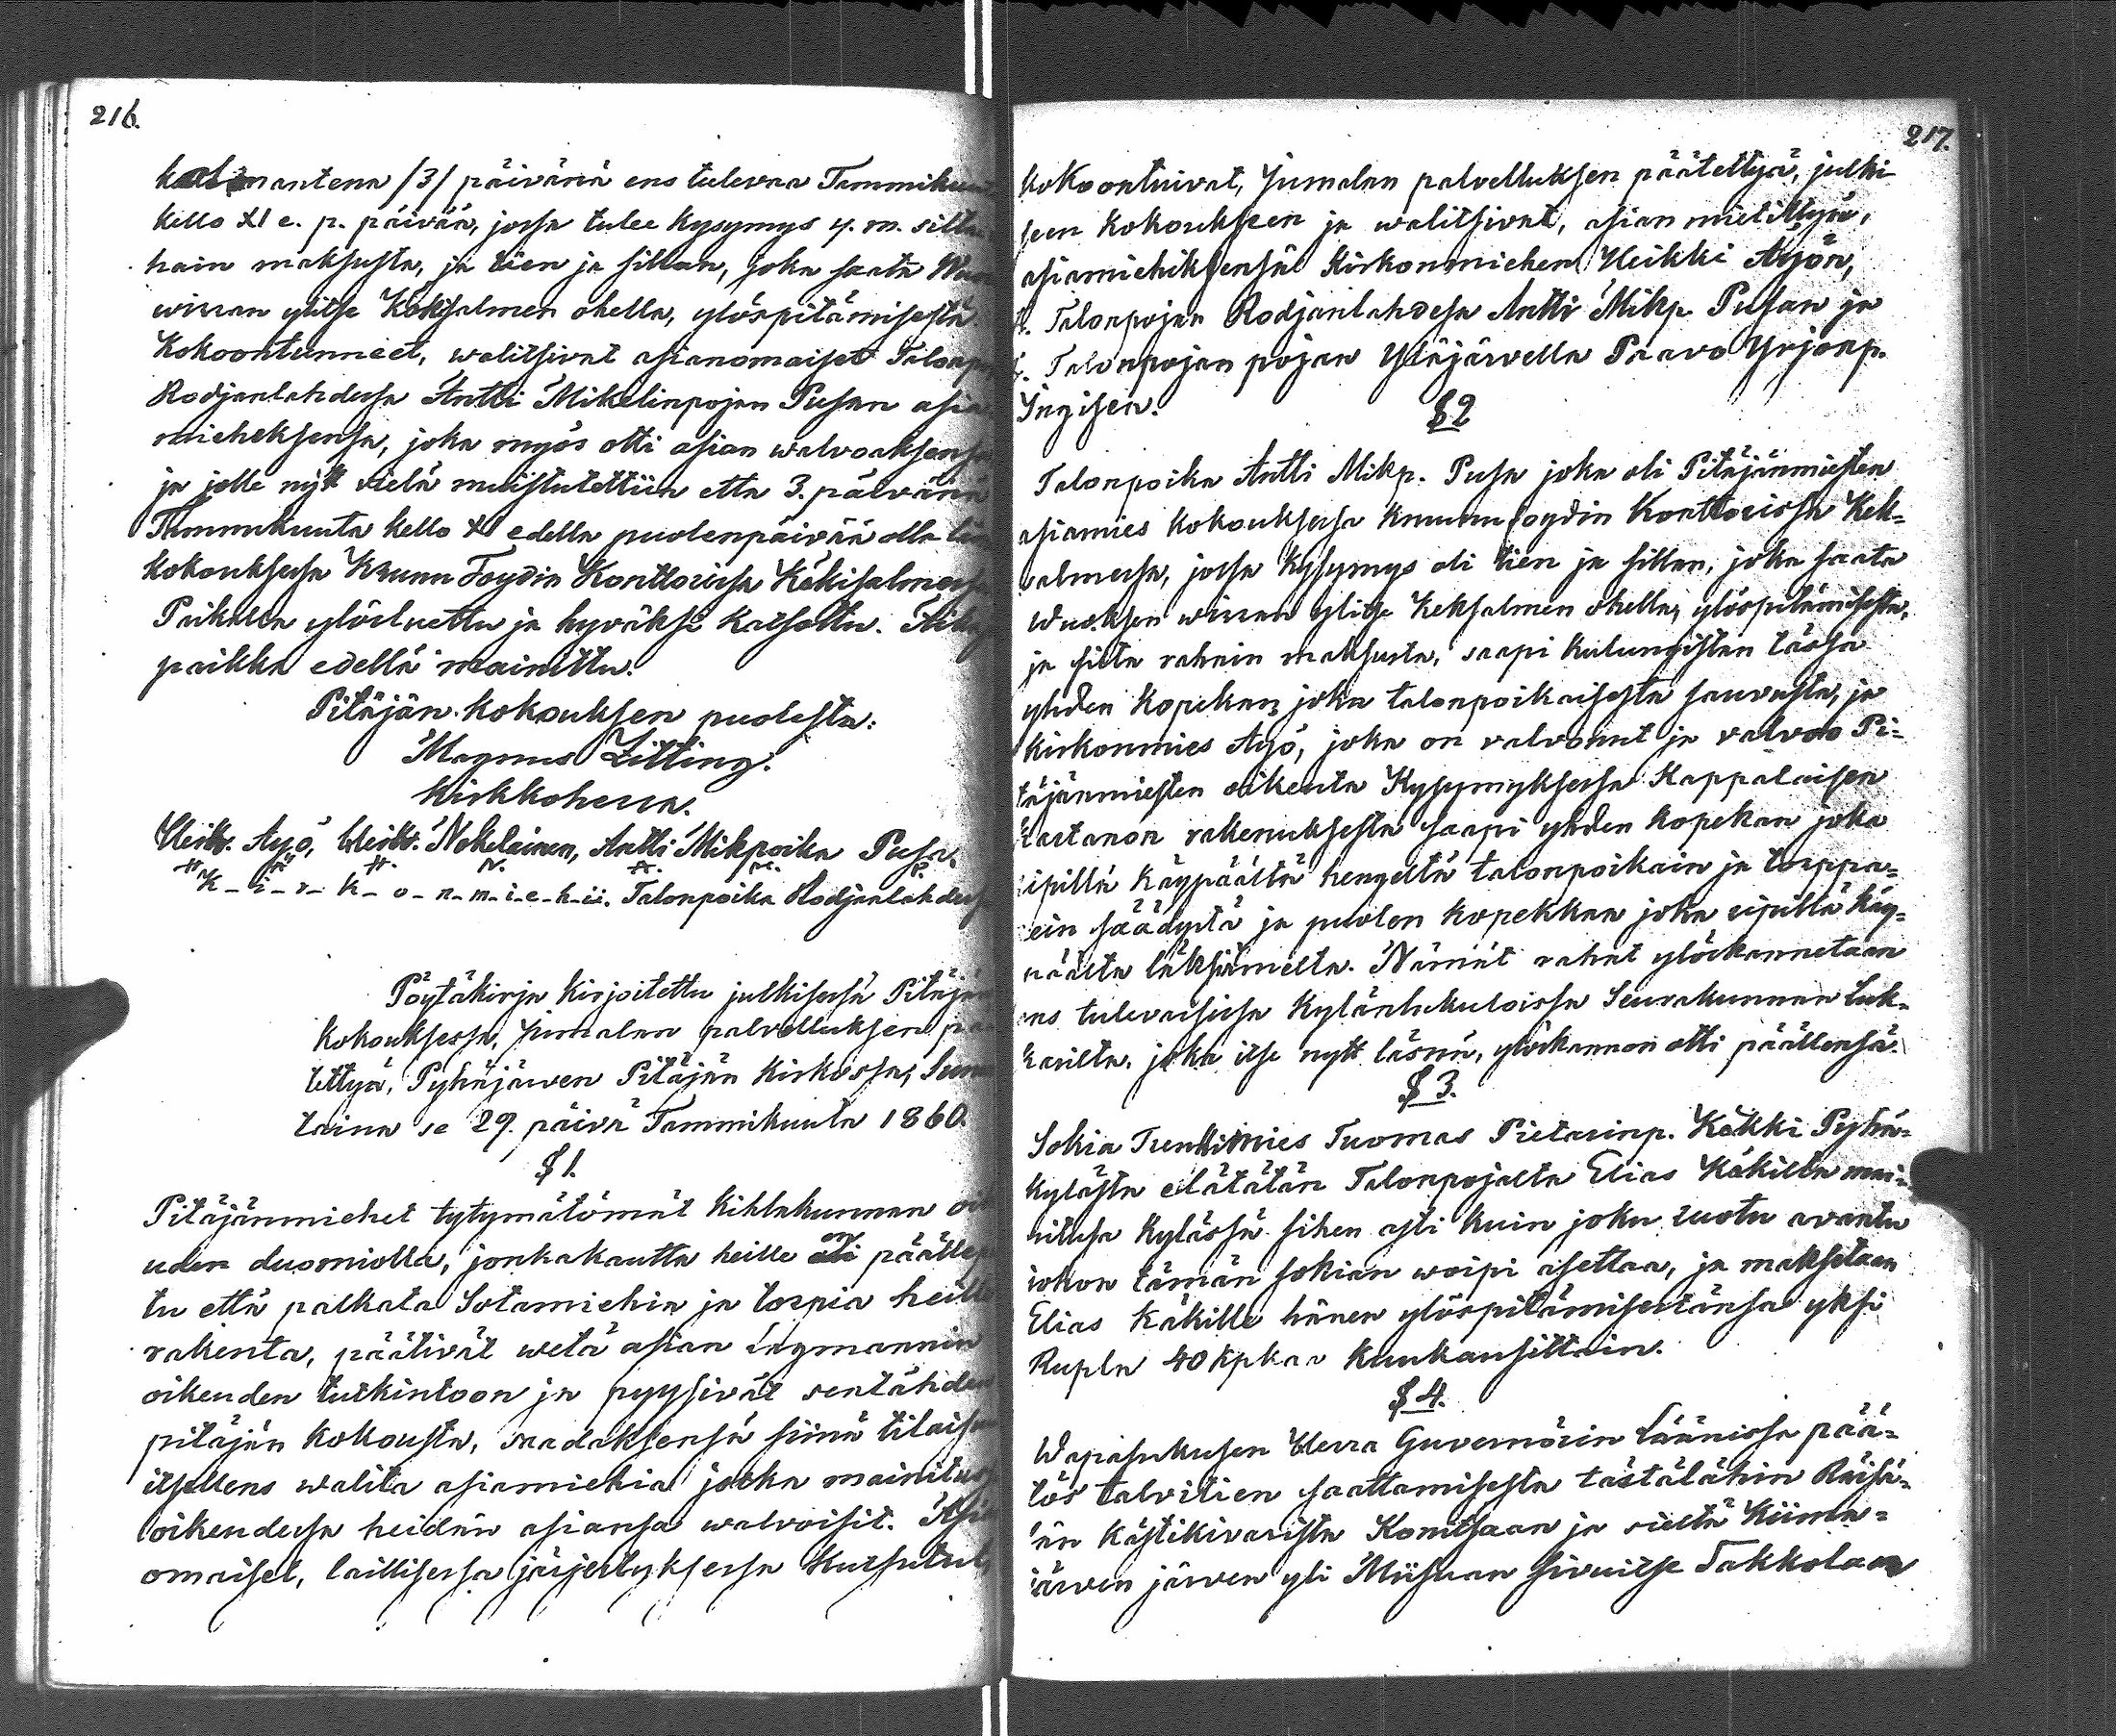 216.
kolmantena /3/ päivänä ens tulevaa Tammikuuta
kello XI e. p. päivää, jossa tulee kysymys y. m. silta
hain maksusta, ja tien ja sillan, joka saata
wirran ylitse Keksalmen ohella, ylöspitämisestä
Kokoontunneet, walitsivat asianomaiset Talonp
Rodjanlahdessa Antti Mikelinpojan Pusan asia
mieheksensä, joka myös otti asian walvoaksensa
ja jolle nytt vielä muistutettiin että 3. päivänä
Tammikuuta kello XI edellä puolenpäivää olla
kokouksessa Kruunu Foydin Konttorissa Käkisalmessa
Paikalla ylösluettu ja hyväksi katsottu. Aika
paikka edellä mainittu.
Pitäjän kokouksen puolesta:
Magnus Zitting.
Kirkkoherra.
Heikk. Äyö, Heikk. Nokelainen, Antti Mikpoika Pusa,
H. Ä. H. N. A. M. P.
K-i-r-k-o-n-m-i-e-h-ii. Talonpoika Rodjanlahdessa
Pöytäkirja kirjoitettu julkisessa Pitäjän
kokouksessa, Jumalan palvelluksen pää
tettyä, Pyhäjärven Pitäjän Kirkossa, Sunnun
taina se 29. päivä Tammikuuta 1860.
§ 1.
Pitäjänmiehet tytymätömät Kihlakunnan oik
uden duomiolla, jonkakautta heille on päälle
tu että palkata Sotamiehiä ja torpia heille
rakenta, päätivät wetä asian Lagmannin
oikeuden tutkintoon ja pyysivät sentähden
pitäjän kokousta, saadaksensa siinä tilaisu
itsellens walita asiamiehiä jotka mainitussa
oikeudessa heidän asiansa walvoisit. Asian
omaiset, laillisessa järjestyksessä kutsutut,
217.
kokoontuivat, Jumalan palvelluksen päätettyä, julki
seen kokoukseen ja walitsivat, asian mietittyä,
asiamiehiksensä Kirkonmiehen Heikki Äyön,
t. Talonpojan Rodjanlahdesa Antti Mikp. Pusan ja
t. Talonpojan pojan Yläjärvellä Paavo Yrjönp.
Ingisen.
§ 2
Talonpoika Antti Mikp. Pusa joka oli Pitäjänmiesten
asiamies kokouksessa kruunufoydin Konttorissa Kek=
salmessa, jossa kysymys oli tien ja sillan, joka saata
Wuoksen wirran ylitse Keksalmen ohella, ylöspitämisestä,
ja silta rahain maksusta, saapi kulungistan tässä
yhden kopekan joka talonpoikaisesta sauvusta, ja
kirkonmies Äyö, joka on valvonut ja valvoo Pi=
täjänmiesten oikeuta Kysymyksessä Kappalaisen
kartanon rakenuksesta saapi yhden kopekan joka
ripillä käypäältä hengeltä talonpoikain ja torppa=
rein säädystä ja puolen kopekkaa joka ripillä käy=
päältä läksiämeltä. Nämät rahat ylöskannetaan
ens tulevaisissa Kylänlukuloissa Seurakunnan Luk=
karilta, joka itse nytt läsnä, ylöskannon otti päällensä.
§ 3.
Sokia Trenkimies Tuomas Pietarinp. Käkki Pyhä=
kylästä elätätän Talonpojalta Elias Käkiltä mai=
nitusa kylässä siihen asti kuin joku ruotu avantu
johon tämän sokian woipi asettaa, ja maksetaan
Elias Käkille hänen ylöspitämisestänsä yksi
Rupla 40 kpkaa kuukausittain.
§ 4.
Wapasukusen Herra Guvernörin Läänissä pää=
tös talvitien saattamisesta tästälähin Räisä=
län Kästikivarista Konitsaan ja sieltä Kiima=
järven järven yli Miisuan sivuitse Takkolaan